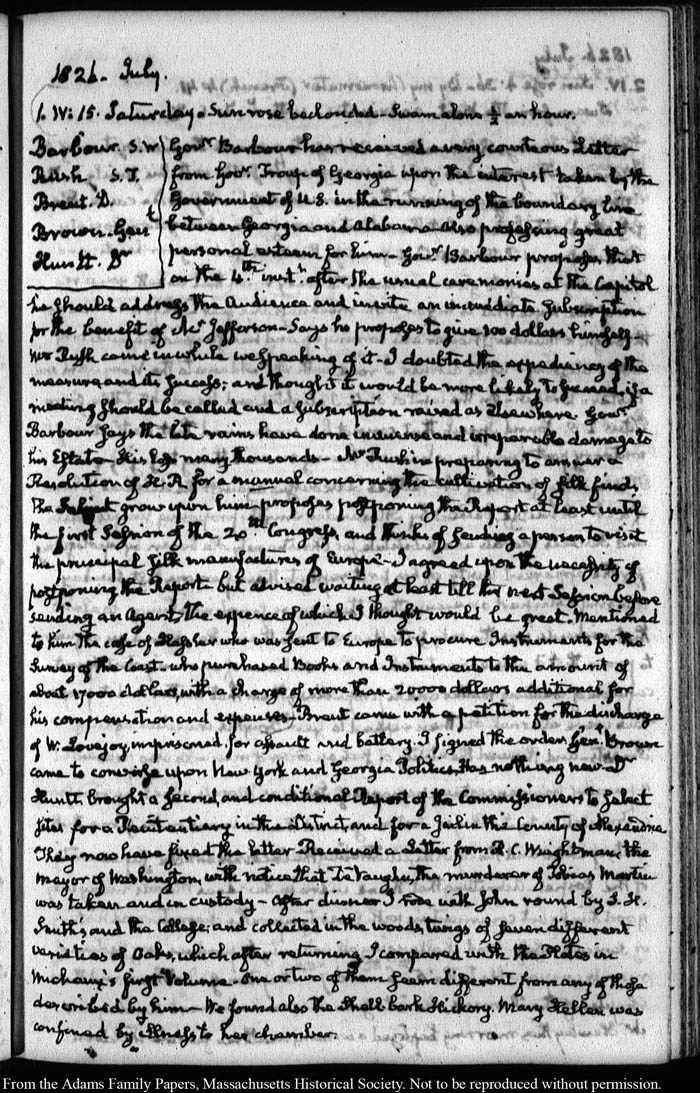 1826. July.
1. IV: 15. Saturday. Sun rose beclouded. Swam alone ½ an hour.
Barbour. S.W
Rush. S.T.
Brent. D.
Brown. Genl
Huntt. Dr
Govr. Barbour has received a very courteous Letter
from Govr. Troup of Georgia upon the interest taken by the
Government of U.S. in the running of the boundary line
between Georgia and Alabama. Also professing great
personal esteem for him. Govr. Barbour proposes that
on the 4th. inst. after the usual ceremonies at the Capitol
he should address the Audience and invite an immediate Subscription
for the benefit of Mr. Jefferson. Says he proposes to give 100 dollars himself.
Mr Rush came in while we speaking of it. I doubted the expediency of the
measure and its success; and thought it would be more likely to succeed, if a
meeting should be called and a Subscription raised as elsewhere. Govr.
Barbour says the late rains have done immense and irreparable damage to
his Estate. His loss many thousands. Mr. Rush in preparing to answer a
Resolution of H.R. for a manual concerning the cultivation of Silk finds
the Subject grow upon him: proposes postponing the Report at least until
the first Session of the 20th. Congress, and thinks of sending a person to visit
the principal Silk manufactures of Europe. I agreed upon the necessity of
postponing the Report. but advised waiting at least till the next Session before
sending an Agent, the expence of which I thought would be great. Mentioned
to him the case of Hassler who was sent to Europe to procure Instruments for the
Survey of the Coast. who purchased Books and Instruments to the amount of
about 17000 dollars, with a charge of more than 20000 dollars additional for
his compensation and expenses. Brent came with a petition for the discharge
of W. Lovejoy, imprisoned for assault and battery. I signed the order. Genl. Brown
came to converse upon New York and Georgia Politics. Has nothing new. Dr
Huntt, brought a second, and conditional Report of the Commissioners to select
sites for a Penitentiary in the District, and for a Jail in the County of Alexandria
They now have fixed the latter. Received a Letter from R. C. Weightman, the
Mayor of Washington, with notice that the murderer of Tobias Martin
was taken and in custody. After dinner I rode with John round by J. H.
Smith's and the College; and collected in the woods, twigs of seven different
varieties of Oaks, which after returning I compared with the Plates in
Michaux's first Volume. One or two of them seem different from any of those
described by him. We found also the Shell bark Hickory. Mary Hellen was
confined by illness to her chamber.
From the Adams Family Papers, Massachusetts Historical Society. Not to be reproduced without permission.